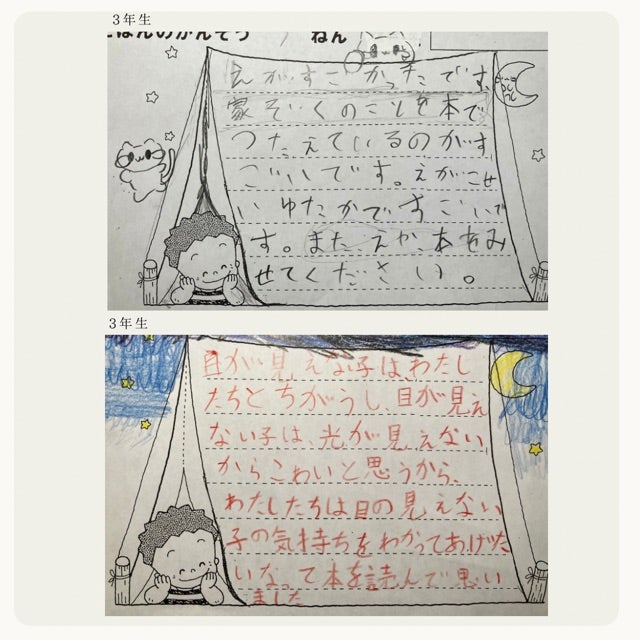 3年生
ほんのかんそう
ねん
えがすごかったです。
家ぞくのことを本で
つたえているのがす
ごいです。えがこせ
いゆたかですごいで
す。またえか本をみ
せてください。
3年生
目が見えない子は、わたし
たちとちがうし、目が見え
ない子は、光が見えない
からこわいと思うから、
わたしたちは目の見えない
子の気持ちをわかってあげた
いなって本を読んで思い
ました